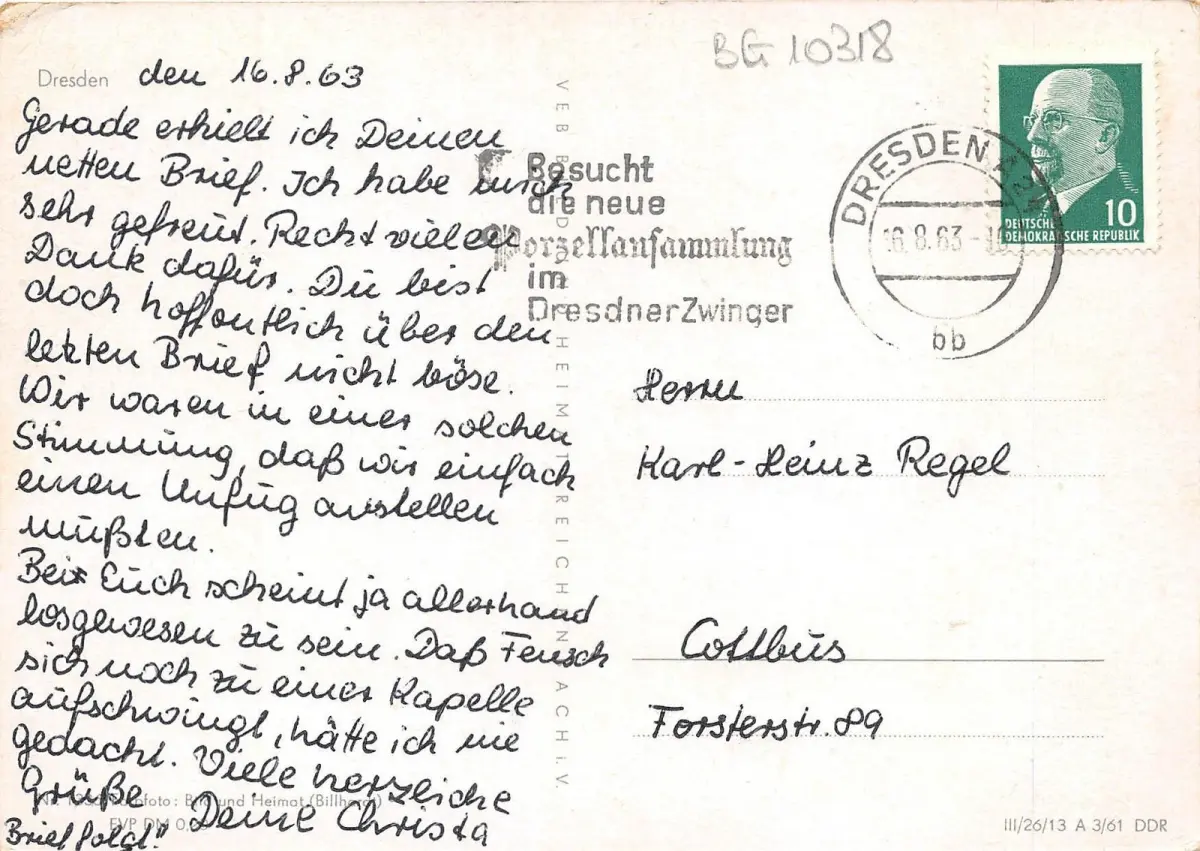 BG 10318
Dresden den 16.8.63
Gerade erhielt ich Deinen
netten Brief. Ich habe mich
sehr gefreut. Recht vielen
Dank dafür. Du bist
doch hoffentlich über den
letzten Brief nicht böse.
Wir waren in einer solchen
Stimmung, daß wir einfach
einen Unfug anstellen
mußten.
Bei Euch scheint ja allerhand
losgewesen zu sein. Daß Fensch
sich noch zu einer Kapelle
aufschwingt, hätte ich nie
gedacht. Viele herzliche
Grüße Deine Christa
Brief folgt!
foto: Bild und Heimat (Billhardt)
EVP DM 0,
VEB BILD HEIMAT REICHENBACH i. V.
Besucht
die neue
Porzellansammlung
im
Dresdner Zwinger
DRESDEN
16.8.63
bb
10
DEUTSCHE
DEMOKRATISCHE REPUBLIK
Herrn
Karl-Heinz Regel
Cottbus
Forsterstr. 89
III/26/13 A 3/61 DDR